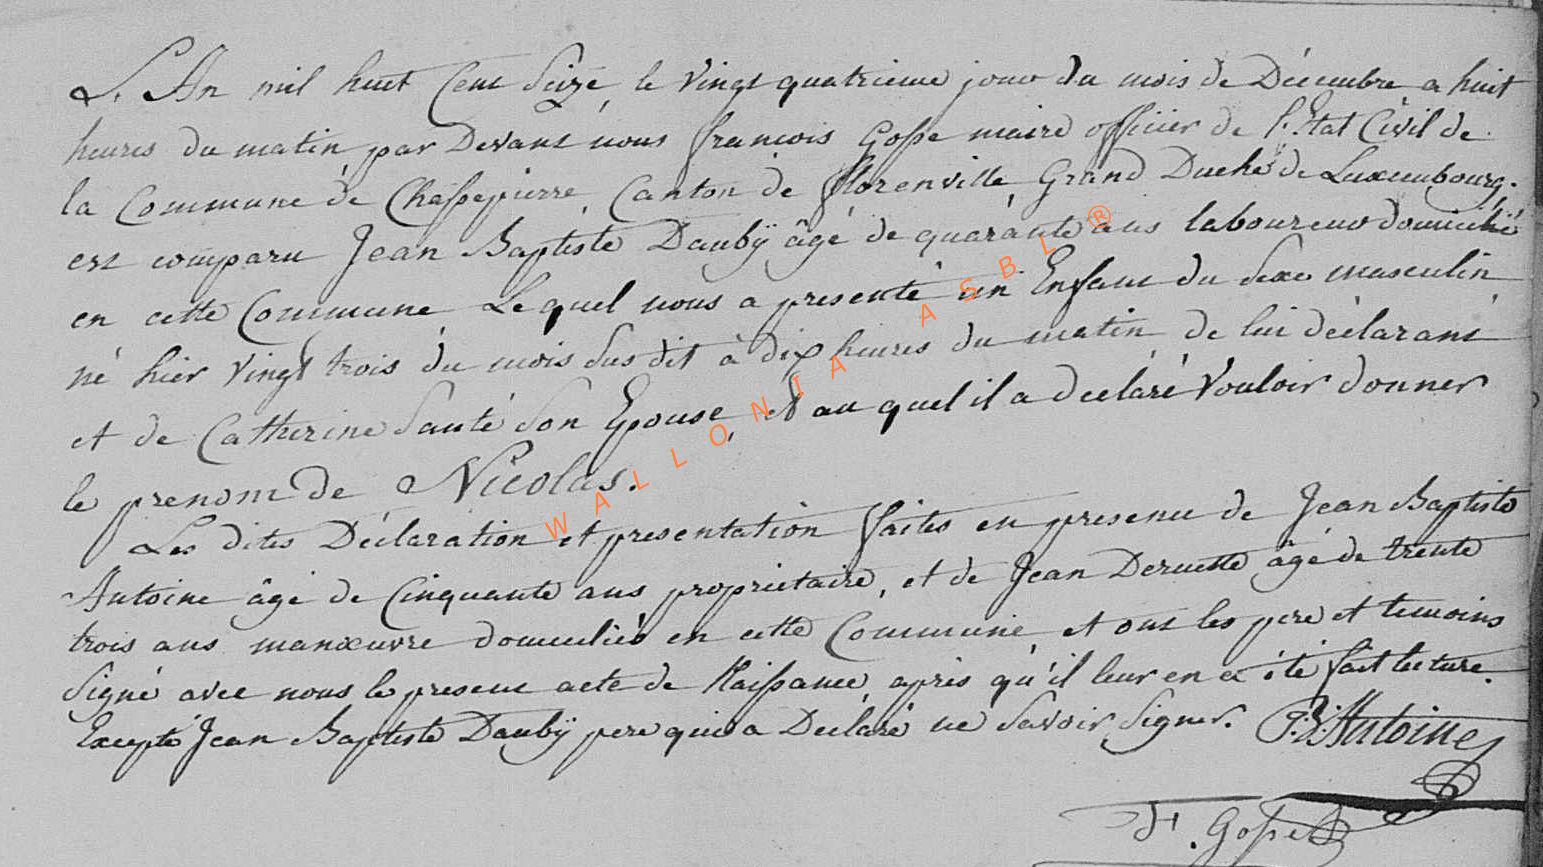 L'An mil huit Cent Seize le vingt quatrieme jour du mois de Décembre a huit
heures du matin par Devant nous francois Gosse maire officier de l'Etat Civil de
la Commune de Chassepierre Canton de florenville Grand Duché de Luxembourg.
est comparu Jean Baptiste Dauby âgé de quarante ans laboureur domicilié
en cette Commune Lequel nous a presenté un Enfant du Sexe masculin
né hier vingt trois du mois Susdit à dix heures du matin de lui déclarant
et de Catherine Santé Son Epouse, et au quel il a declaré Vouloir donner
le prenom de Nicolas.
Les dites Déclaration et presentation faites en presence de Jean Baptiste
Antoine âgé de Cinquante ans proprietaire, et de Jean Deruette âgé de trente
trois ans manœuvre domiciliés en cette Commune et ont les pere et temoins
Signé avec nous le present acte de Naissance, après qu'il leur en a été fait lecture.
Excepté Jean Baptiste Dauby pere qui a Déclaré ne Savoir Signer. J:B:Antoine
F. Gosse
WALLONIA ASBL ®